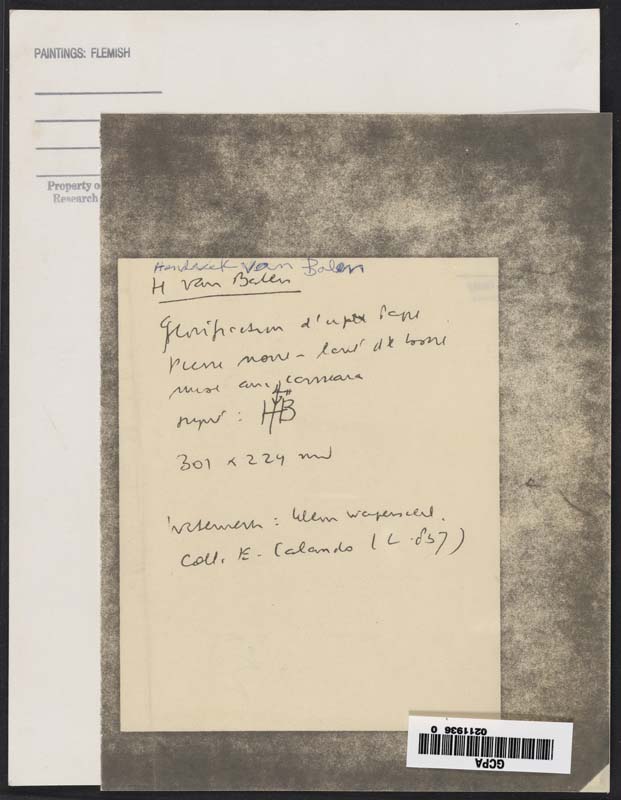 PAINTINGS: FLEMISH
Property o
Research
Hendrick van Balen
H van Balen
Glorification d'un Pape
pierre noire - lavé de bistre
mise au carreau
signé : HB
301 x 224 mm
watermerk : klein wapenschild.
Coll. E. Calando (L.837)
GCPA
0211936 0